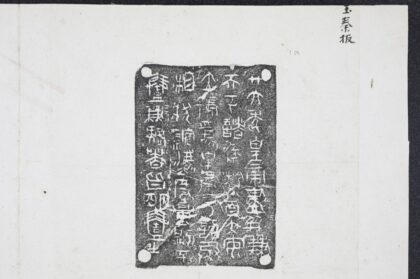 秦板
廿六年皇帝盡并兼
天下諸侯黔首大安
立號為皇帝乃詔丞
相狀綰法度量則不
壹歉疑者皆明壹之